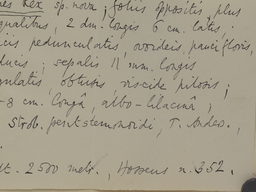 Rex sp. nova; foliis oppositis, plus
2 dm. longis 6 cm. latis,
pedunculatis, ovoideis, paucifloris,
sepalis 11 mm. longis
obtusis, viscide pilosis;
-8 cm. longâ, albo-lilacinâ;
Strob. pentstemonoidi, T. Anders.,
2500 metr., Hosseus n. 352.